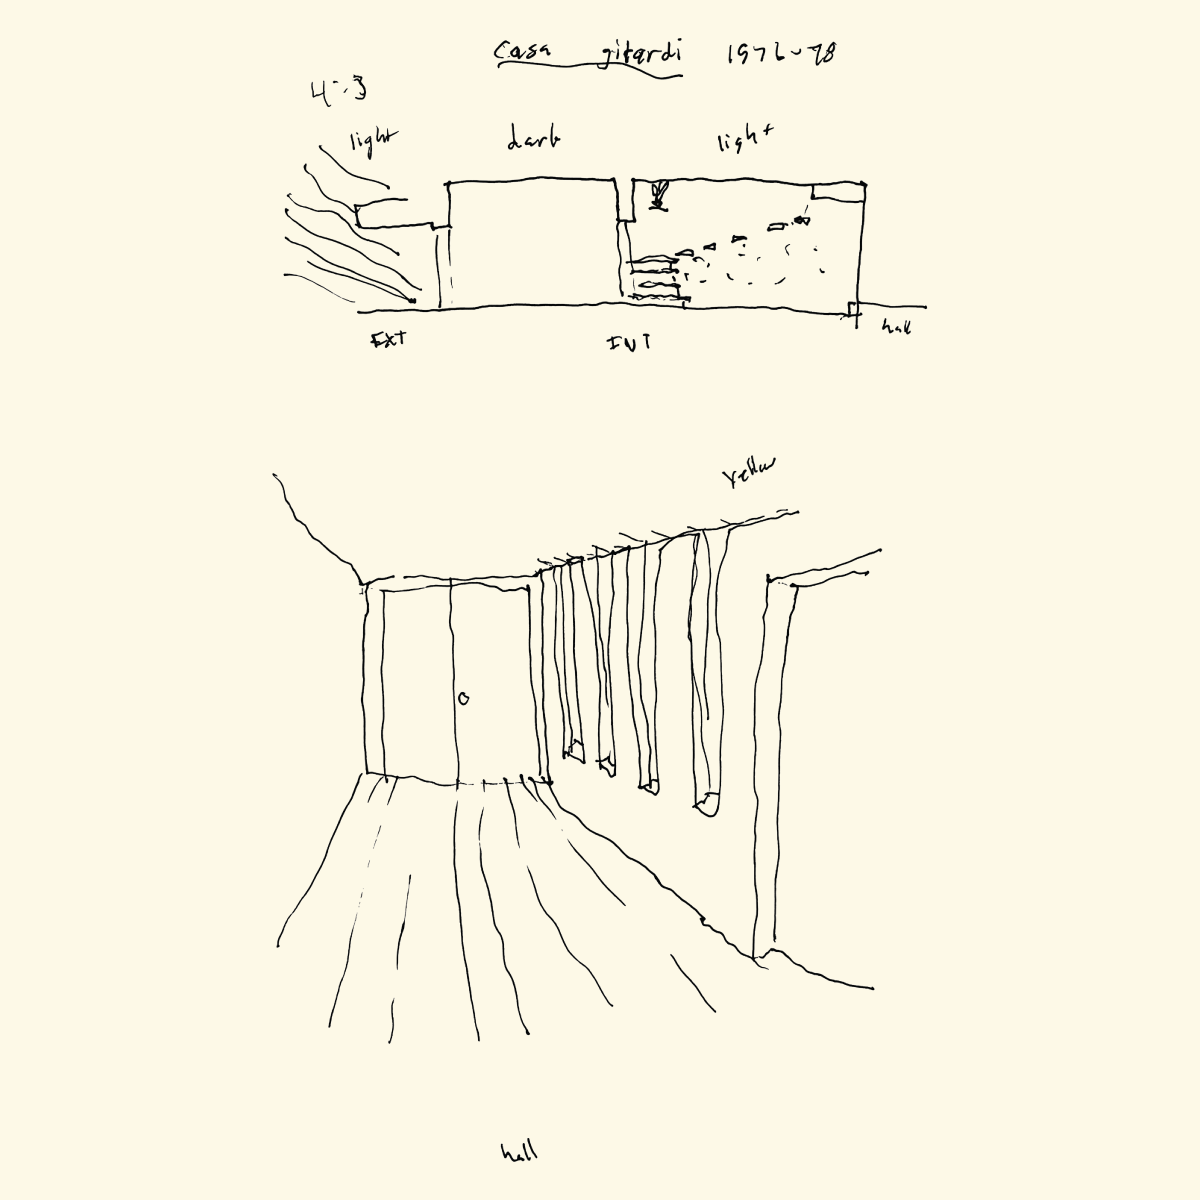 Casa gilardi 1976-78
4:-3
light dark light
EXT INT hall
Yellow
hall